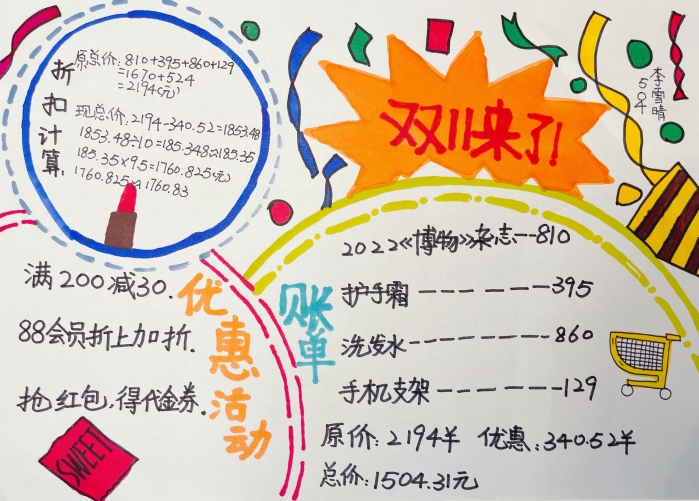 折扣计算:
原总价:810+395+860+129
=1670+524
=2194(元)
现总价.2194-340.52=1853.48
1853.48÷10=185.348≈185.35
185.35×9.5=1760.825(元)
1760.825≈1760.83
双11来了!
李雪晴
504
满200减30.
88会员折上加折.
抢红包,得代金券.
优惠活动
SWEET
账单
2022《博物》杂志--810
护手霜-------395
洗发水-------860
手机支架------129
原价:2194羊 优惠:340.52羊
总价:1504.31元